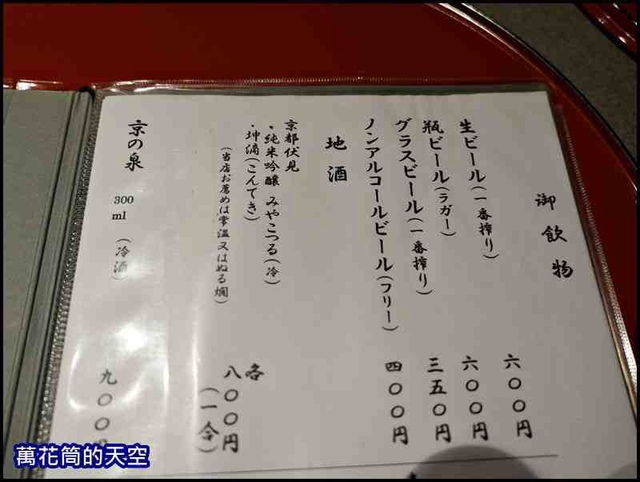 御飲物
生ビール（一番搾り） 六〇〇円
瓶ビール（ラガー） 六〇〇円
グラスビール（一番搾り） 三五〇円
ノンアルコールビール（フリー） 四〇〇円
地酒
京都伏見
・純米吟醸 みやこつる（冷）
・坤滴（こんてき）
（当店お薦めは常温又はぬる燗）
各八〇〇円
（一合）
京の泉 300ml （冷酒） 九〇〇円
萬花筒的天空